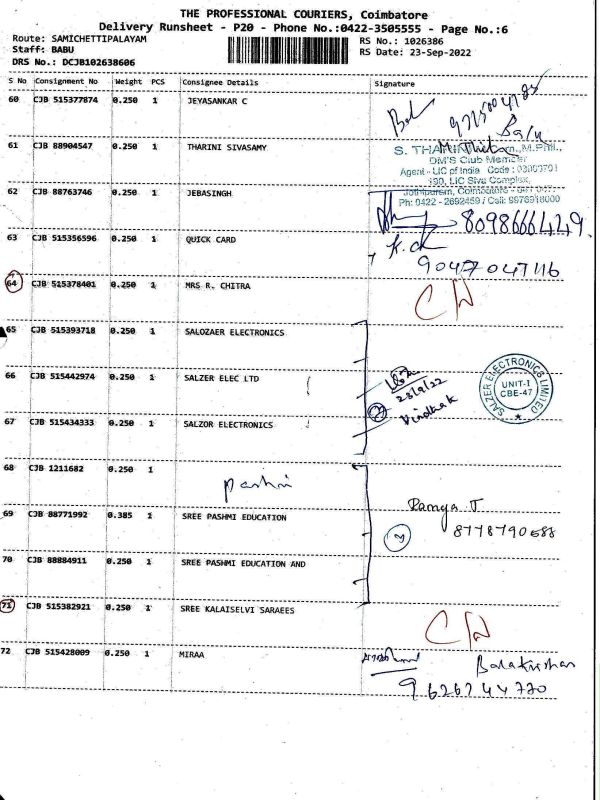 THE PROFESSIONAL COURIERS, Coimbatore
Delivery Runsheet - P20 - Phone No.:0422-3505555 - Page No.:6
Route: SAMICHETTIPALAYAM RS No.: 1026386
Staff: BABU RS Date: 23-Sep-2022
DRS No.: DCJB102638606
S No Consignment No Weight PCS Consignee Details Signature
60 CJB 515377874 0.250 1 JEYASANKAR C
61 CJB 88904547 0.250 1 THARINI SIVASAMY
S. THARINI
DM'S Club Member
Agent - LIC of India Code :
LIC Siva Complex,
62 CJB 88763746 0.250 1 JEBASINGH
Ph: 0422 - 2692459 / Cell:
8098666429
63 CJB 515356596 0.250 1 QUICK CARD
K.ck
9047047116
64 CJB 515378401 0.250 1 MRS R. CHITRA
65 CJB 515393718 0.250 1 SALOZAER ELECTRONICS
66 CJB 515442974 0.250 1 SALZER ELEC LTD
23/9/22
SALZER ELECTRONICS LIMITED
UNIT-I
CBE-47
67 CJB 515434333 0.250 1 SALZOR ELECTRONICS
68 CJB 1211682 0.250 1
Pashmi
Ramya T
8778790588
69 CJB 88771992 0.385 1 SREE PASHMI EDUCATION
3
70 CJB 88884911 0.250 1 SREE PASHMI EDUCATION AND
71 CJB 515382921 0.250 1 SREE KALAISELVI SARAEES
72 CJB 515428009 0.250 1 MIRAA
Balakrishnan
9626744770